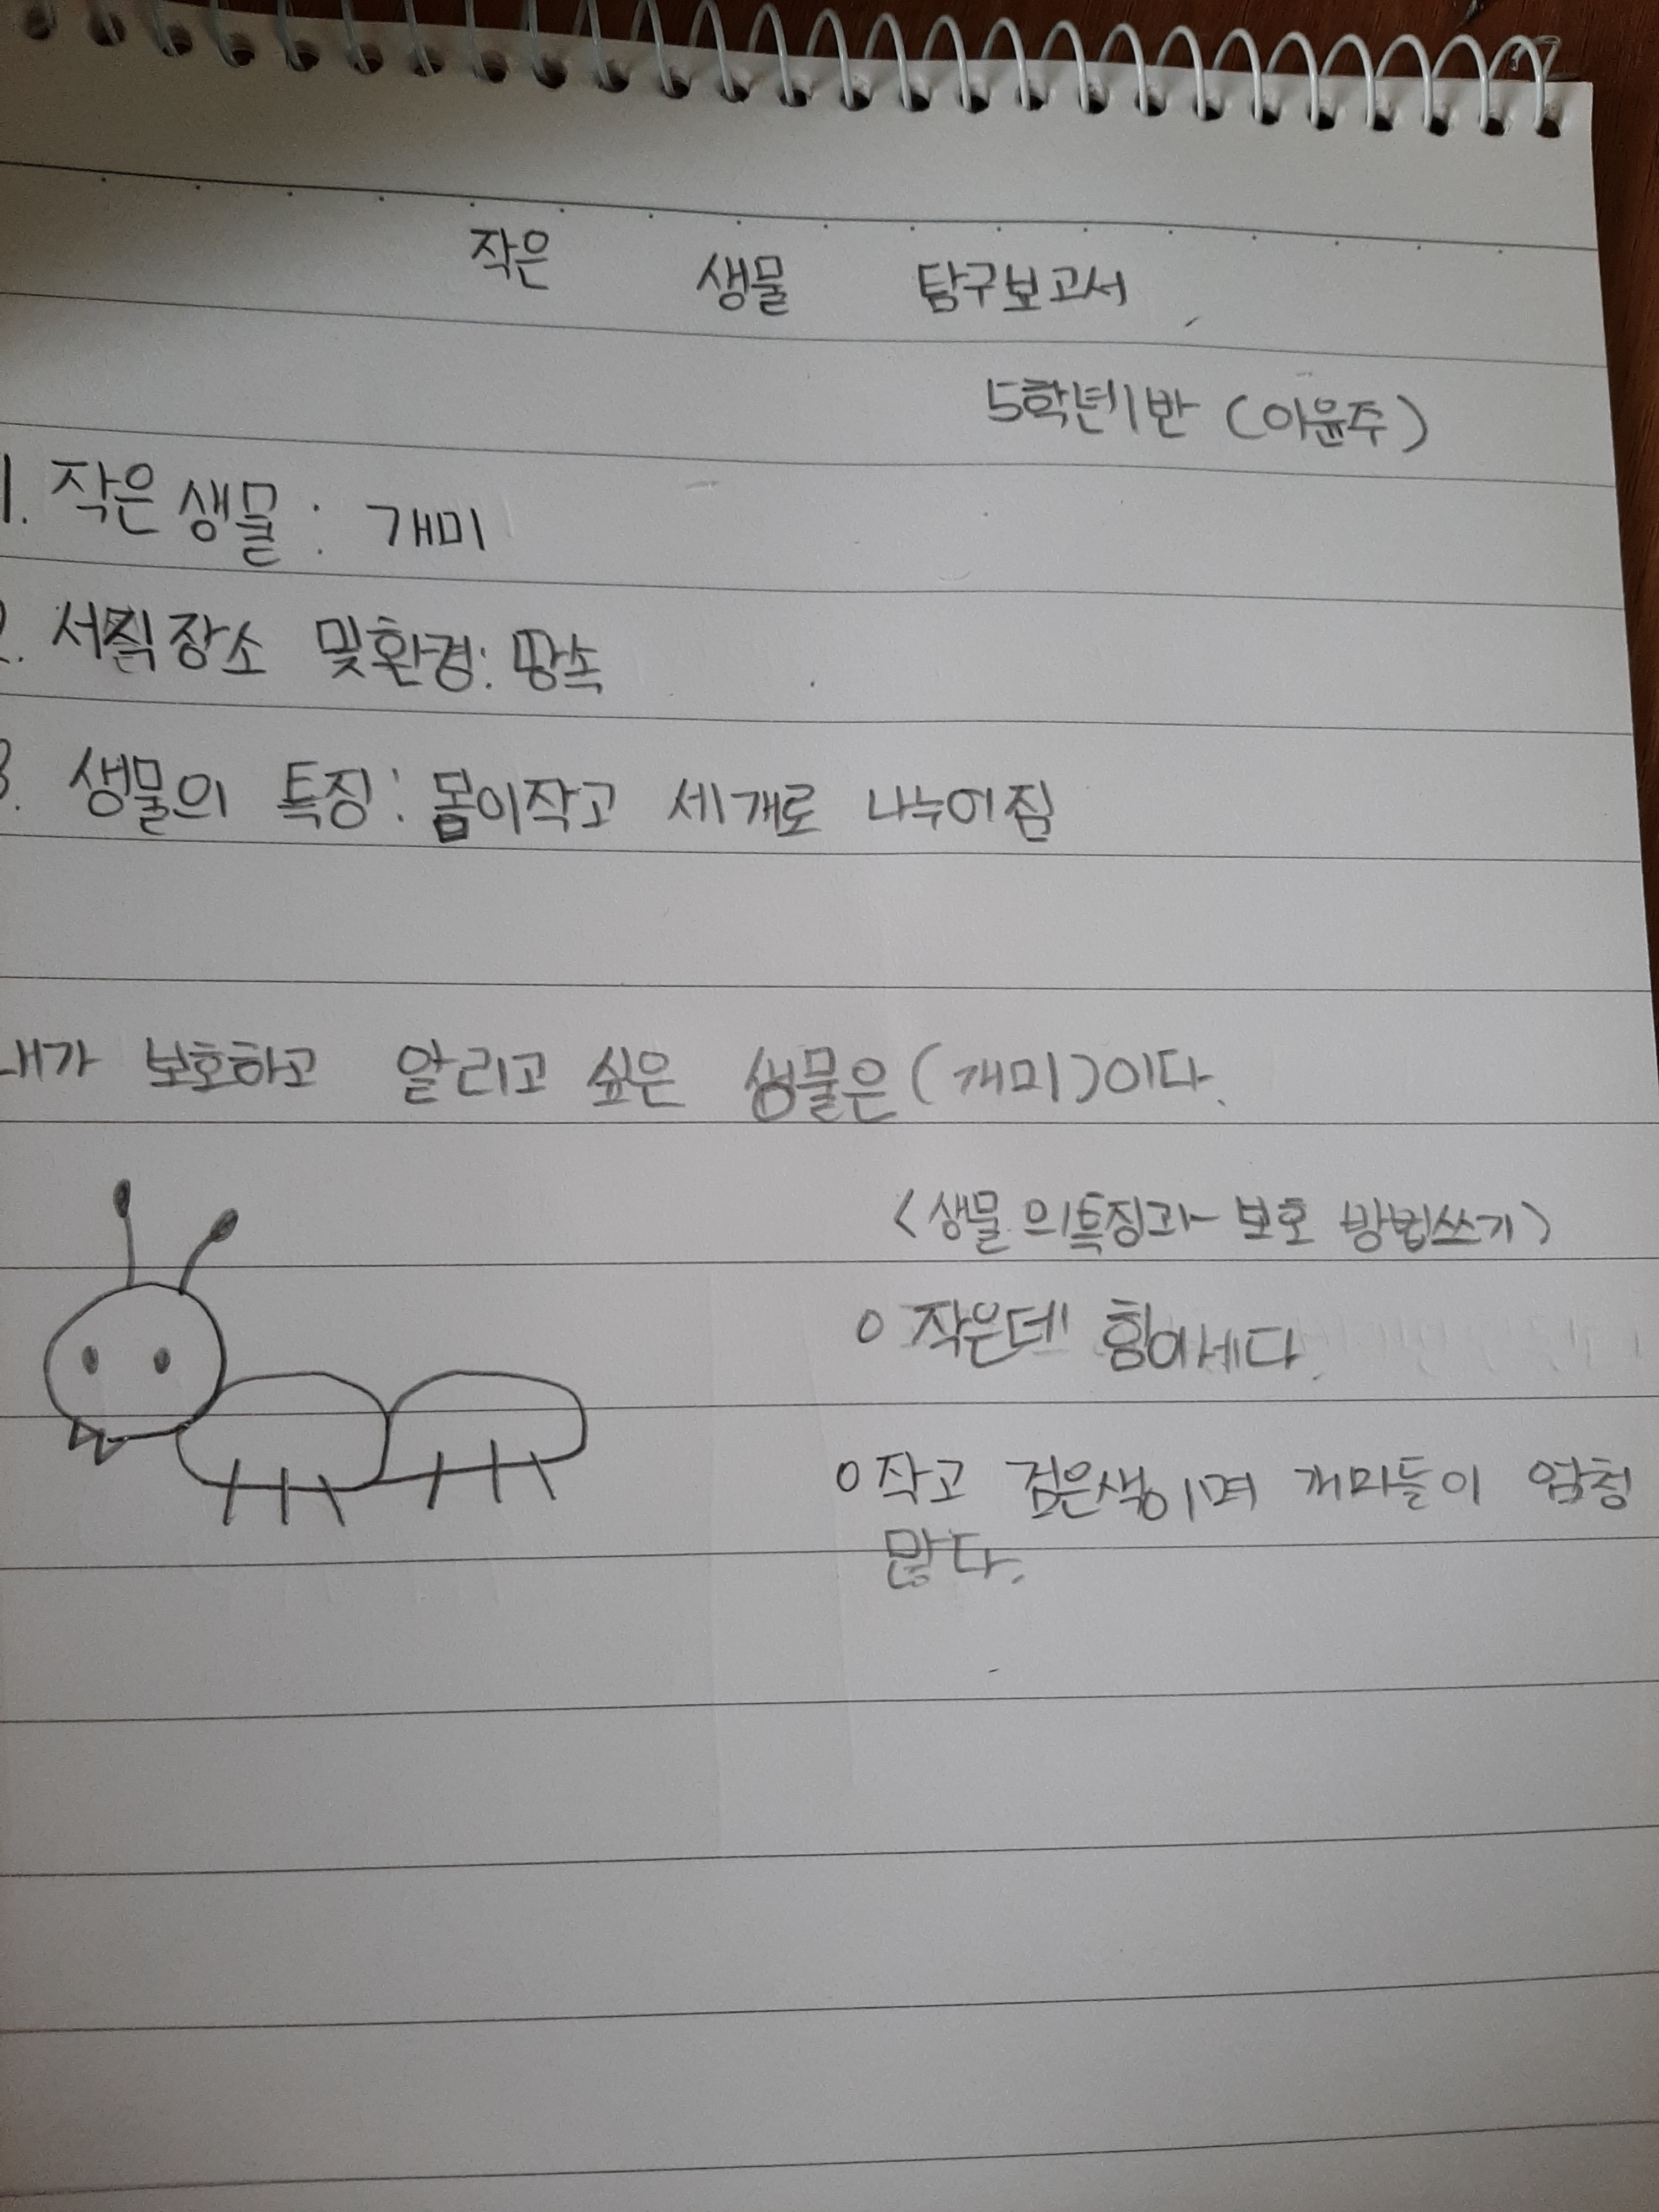 작은 생물 탐구보고서
5학년1반 (이윤주)
1. 작은 생물 : 개미
2. 서직장소 및환경: 땅속
3. 생물의 특징: 몸이작고 세개로 나누어짐
내가 보호하고 알리고 싶은 생물은(개미)이다.
<생물의특징과 보호 방법쓰기>
o 작은데 힘이세다.
o 작고 검은색이며 개미들이 엄청
많다.